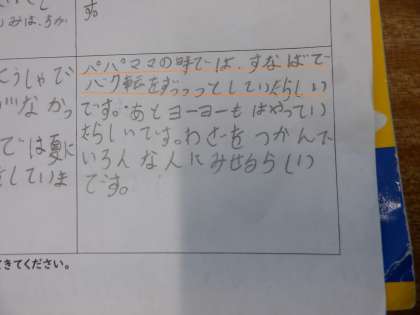 す。
しみは、ろか
こうしゃで
がなかっ
では夏に
をしていま
パパママの時では、すなばで
バク転をずっっっとしていたらしい
です。あとヨーヨーもはやってい
たらしいです。わざをつかんで
いろんな人にみせるらしい
です。
てきてください。